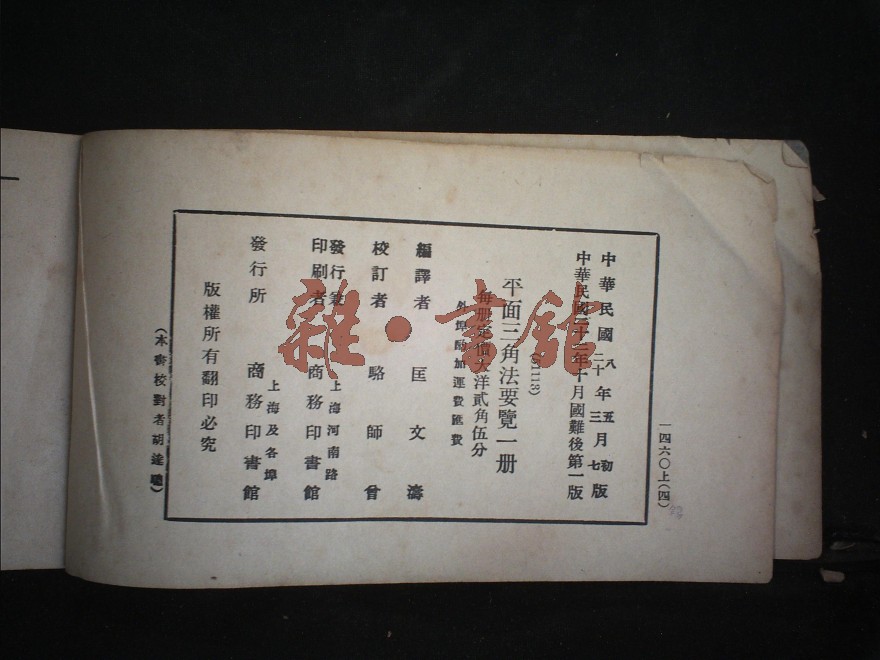 一四六〇上(四)
中華民國八年五月初版
中華民國二十三年七版
中華民國二十二年十月國難後第一版
平面三角法要覽一册
(51113)
每册定價大洋貳角伍分
外埠酌加運費匯費
編譯者 匡文濤
校訂者 駱師曾
發行兼印刷者 上海河南路 商務印書館
發行所 上海及各埠 商務印書館
版權所有翻印必究
(本書校對者胡達聰)
雜·書館